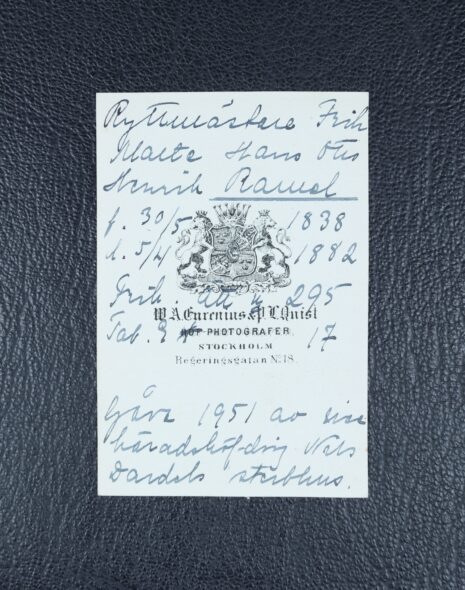 Ryttmästare Frih
Malte Hans Otto
Henrik Ramel
f. 30/5 1838
d. 5/4 1882
Frih. ätt N 295
W.A. Eurenius & P.L. Quist
HOF PHOTOGRAFER
Tab. 17
STOCKHOLM
Regeringsgatan No 18.
Gåva 1951 av
häradshöfding Nils
Dardels sterbhus.